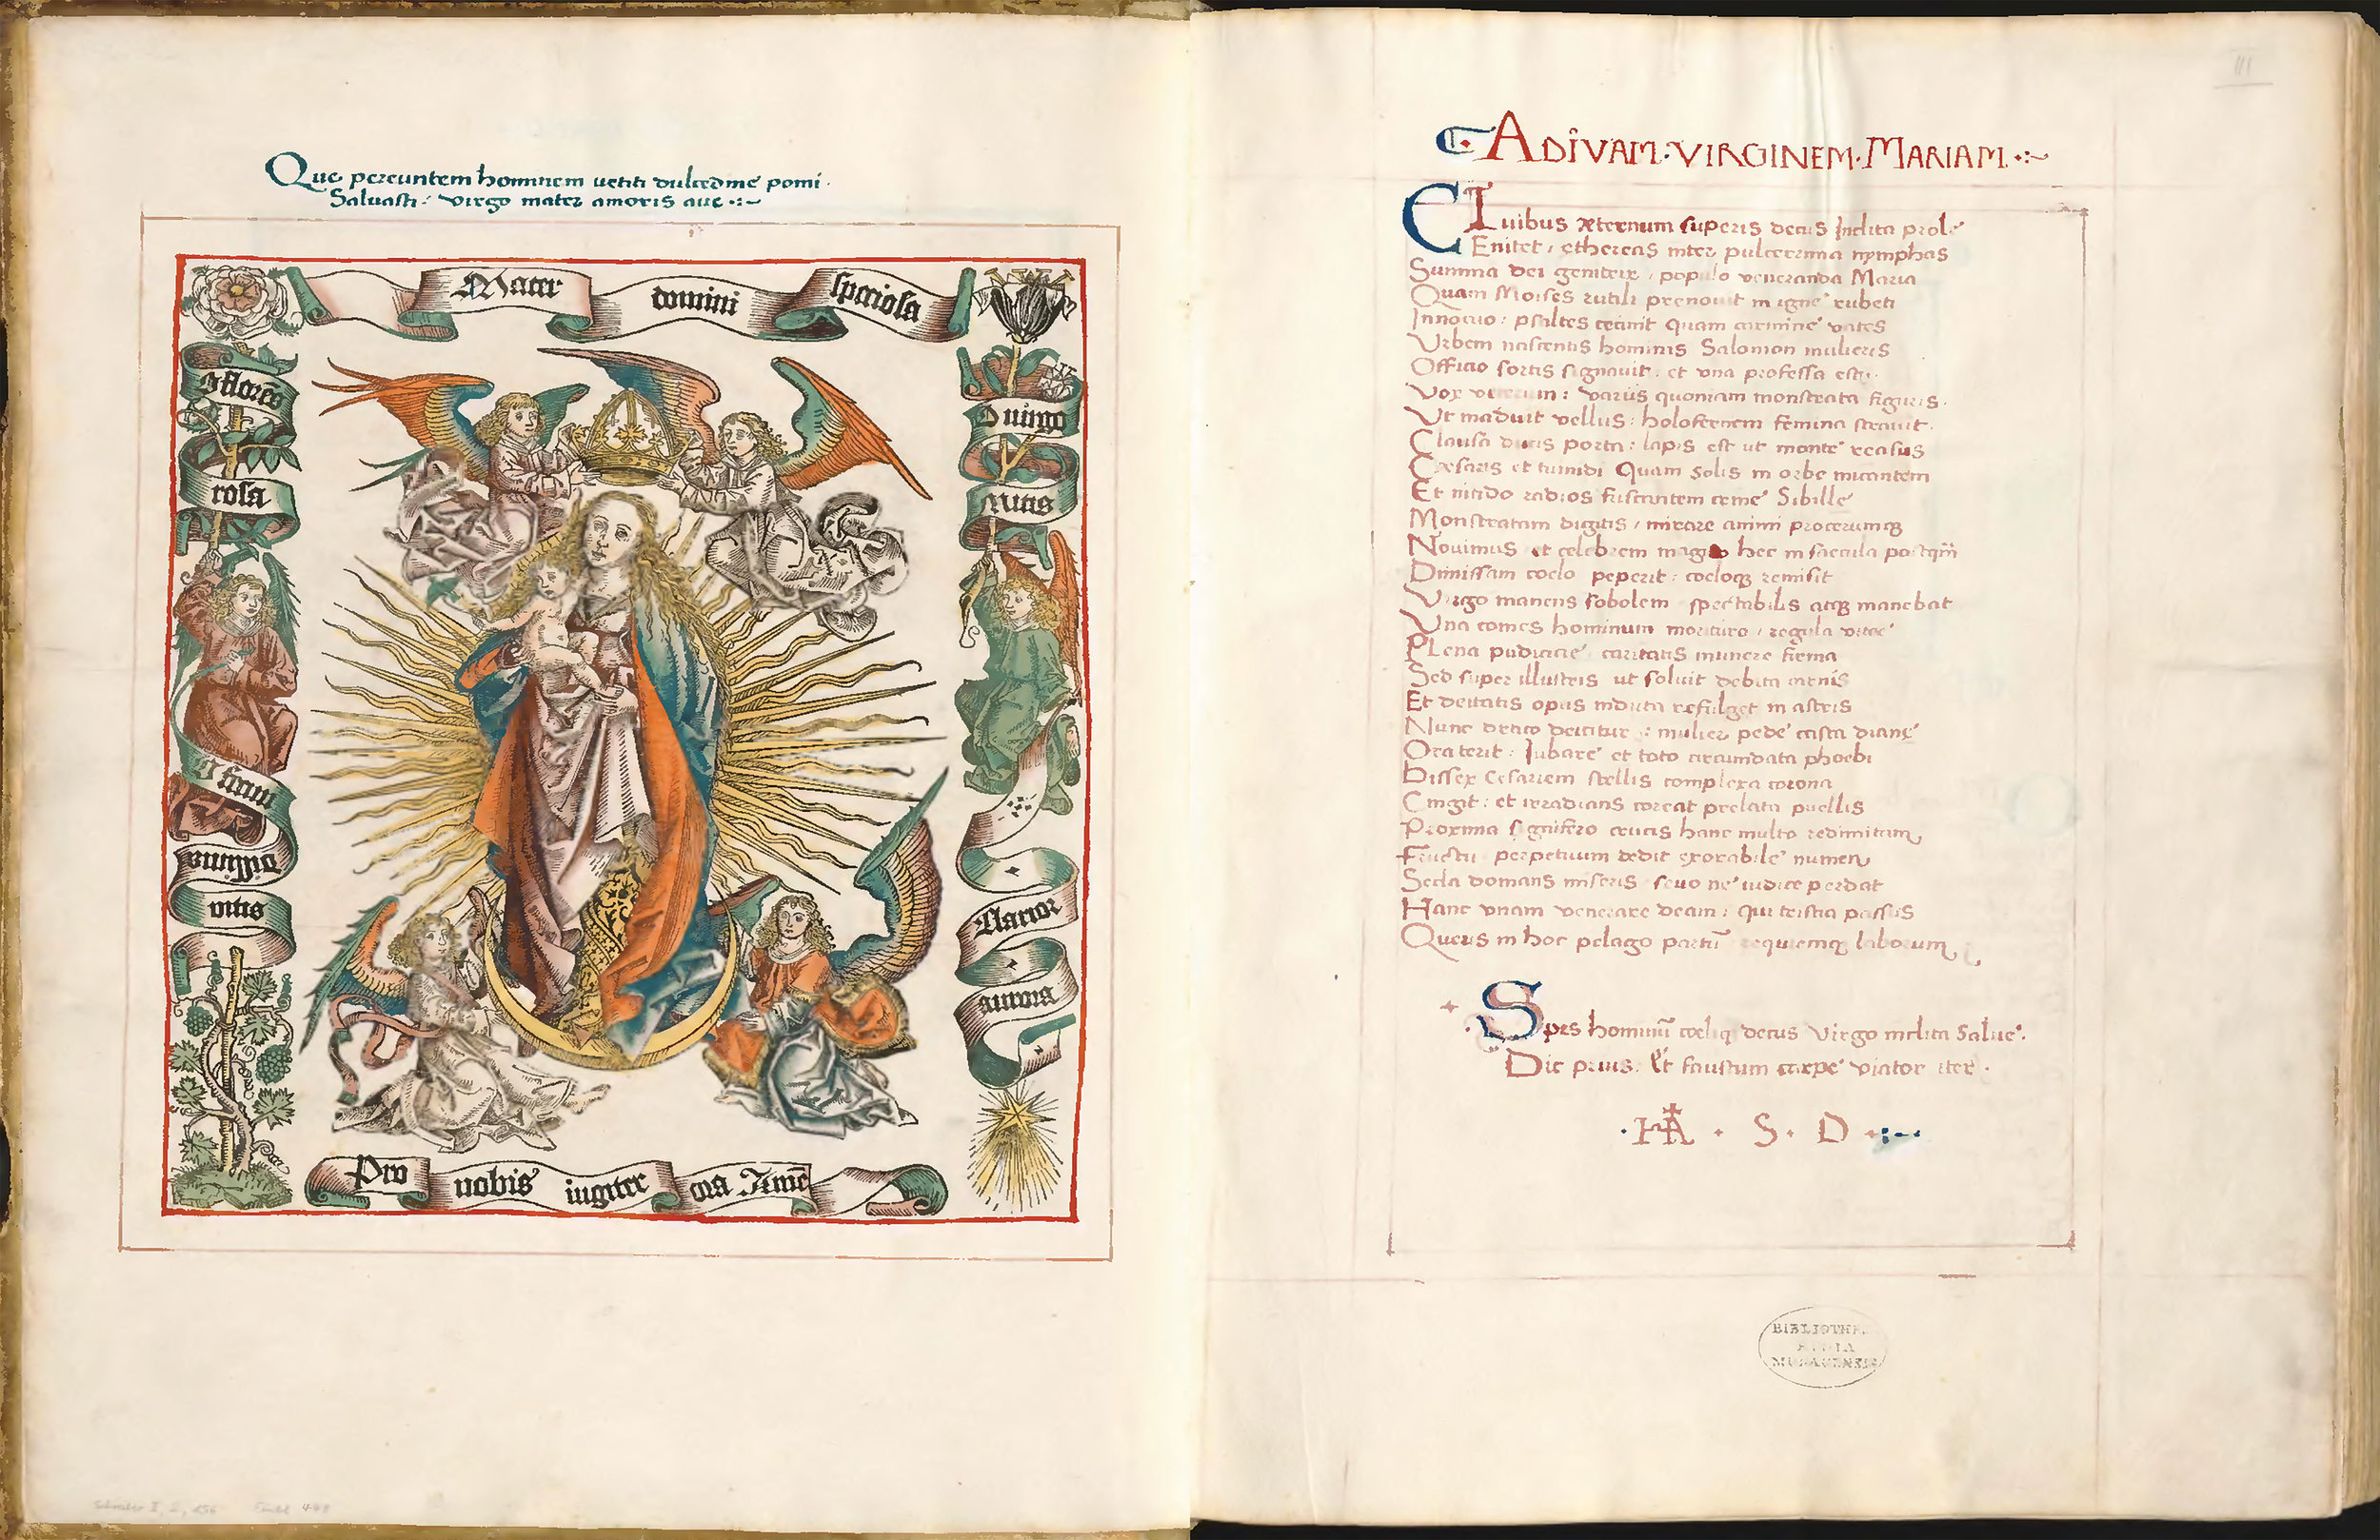 Que pereuntem hominem uetiti dulcedine pomi.
Saluasti: virgo mater amoris aue
Mater domini speciosa
O florēs
rosa
O uirgo
mitis
O
uitis
Clarior
aurora
Pro nobis iugiter ora Amē
ADIVAM·VIRGINEM·MARIAM
Ciuibus æternum superis decus Inclita prole
Enitet, ethereas inter pulcerrima nymphas
Summa dei genitrix, populo veneranda Maria
Quam Moises rutili prenouit in igne rubeti
Innocuo: psaltes cecinit quam carmine vates
Vrbem nascentis hominis Salomon mulieris
Officio fortis signauit: et vna professa est:
Vox: variis quoniam monstrata figuris.
Vt maduit vellus: holofernem femina strauit.
Clausa ducis porta: lapis est ut monte recisus
Cæsaris et tumidi Quam solis in orbe micantem
Et nitido radios fuscantem cerne Sibille
Monstratam digitis, mirare animi procerumq
Nouimus et celebrem magis hec in sæcula postqm̄
Dimissam coelo peperit: coeloq remisit
Virgo manens sobolem spectabilis atq manebat
Vna comes hominum morituro, regula vitae
PLena pudicicie caritatis munere firma
Sed super illustris ut soluit debita carnis
Et deitatis opus induta refulget in astris
Nunc draco deicitur: mulier pede casta diane
Ora terit: Iubare et toto circumdata phoebi
Bissex Cesariem stellis complexa corona
Cingit: et irradians coreat prelata puellis
Proxima signifero crucis hanc multo redimitam
Fructu perpetuum dedit exorabile numen
Secla domans miseris seuo ne iudice perdat
Hanc vnam venerare deam: qui tristia passus
Queris in hoc pelago partū requiemq laborum
Spes hominū coeliq decus Virgo inclita Salue.
Dic prius. Et faustum carpe viator iter.
HA · S · D
BIBLIOTHE
III